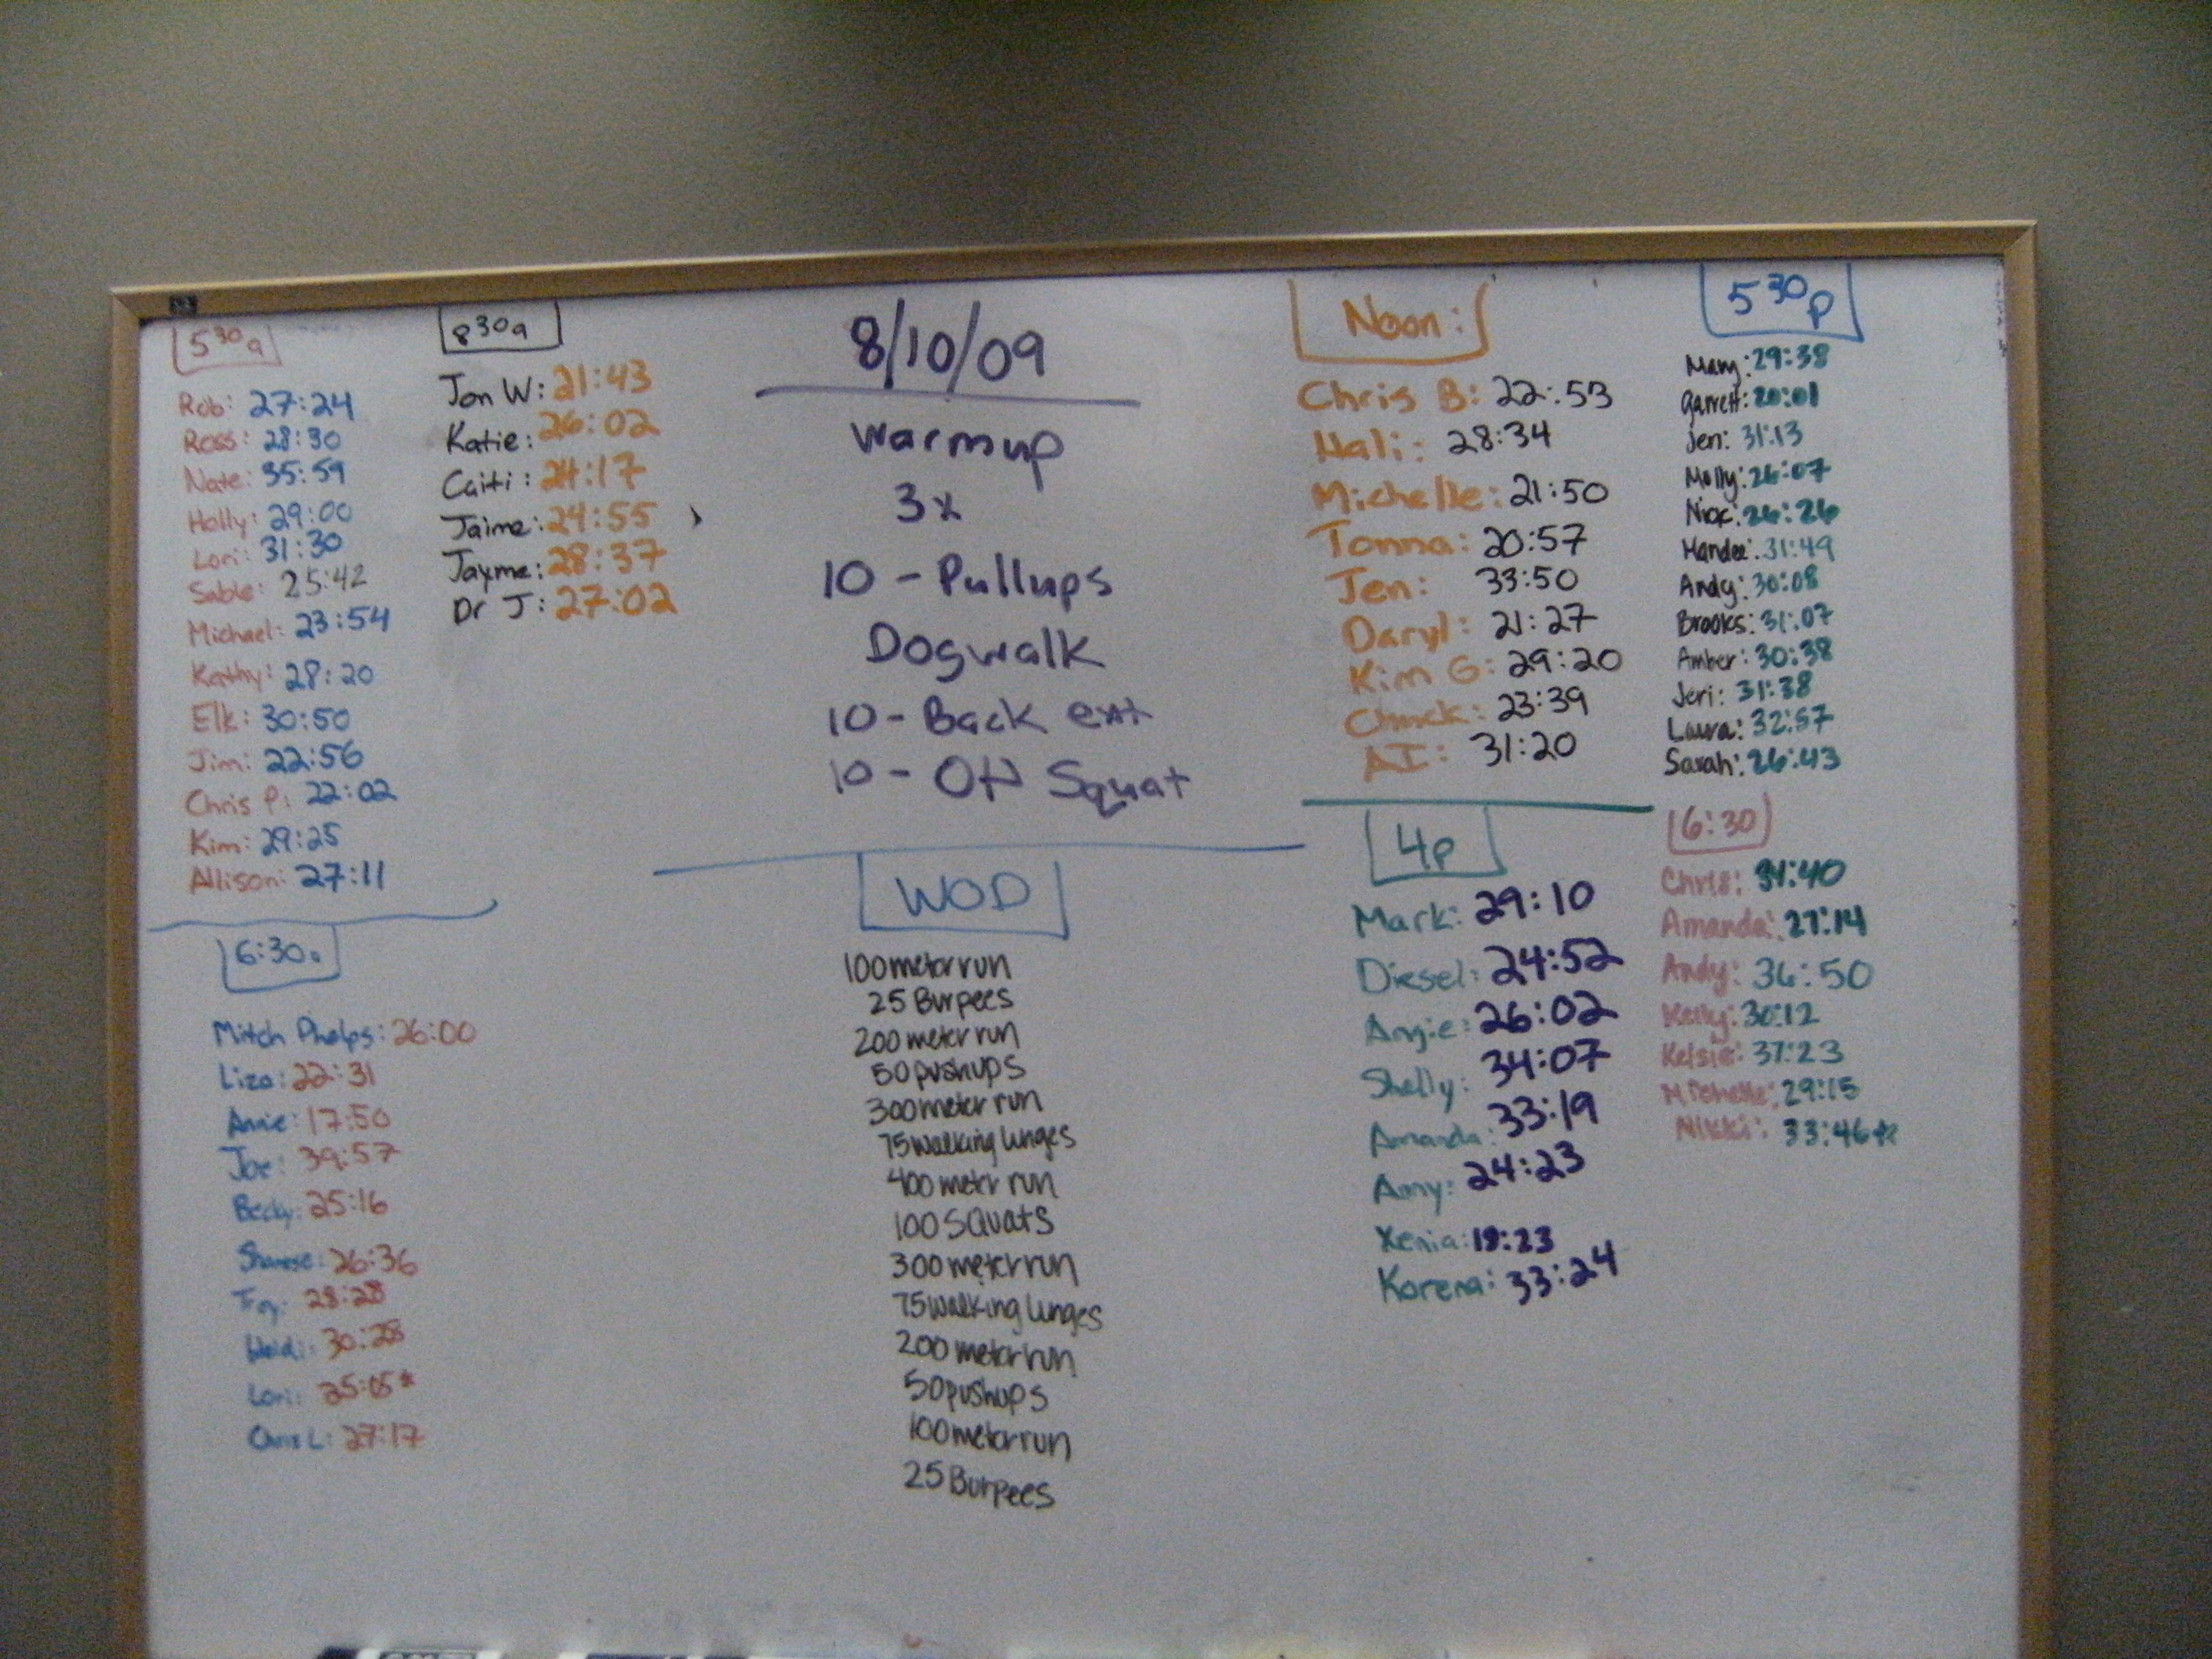 5 30 a
Rob: 27:24
Ross: 28:30
Nate: 35:59
Holly: 29:00
Lori: 31:30
Sable: 25:42
Michael: 23:54
Kathy: 28:20
Elk: 30:50
Jim: 22:56
Chris P: 22:02
Kim: 29:25
Allison: 27:11
6:30a
Mitch Phelps: 26:00
Liza: 22:31
Annie: 17:50
Joe: 39:57
Becky: 25:16
26:36
Troy: 28:28
Heidi: 30:28
Lori: 35:05*
Chris L: 27:17
8 30 a
Jon W: 21:43
Katie: 26:02
Caiti: 24:17
Jaime: 24:55
Jayme: 28:37
Dr J: 27:02
8/10/09
Warmup
3x
10 - Pullups
Dogwalk
10 - Back ext
10 - OH Squat
WOD
100 meter run
25 Burpees
200 meter run
50 pushups
300 meter run
75 walking lunges
400 meter run
100 SQuats
300 meter run
75 walking lunges
200 meter run
50 pushups
100 meter run
25 Burpees
Noon:
Chris B: 22:53
Hali: 28:34
Michelle: 21:50
Tonna: 20:57
Jen: 33:50
Daryl: 21:27
Kim G: 29:20
Chuck: 23:39
AI: 31:20
4p
Mark: 29:10
Diesel: 24:52
Angie: 26:02
Shelly: 34:07
Amanda: 33:19
Amy: 24:23
Xenia: 19:23
Korena: 33:24
5 30 p
Mary: 29:38
Garrett: 20:01
Jen: 31:13
Molly: 26:07
Nick: 26:26
Mandee: 31:49
Andy: 30:08
Brooks: 31:07
Amber: 30:38
Jeri: 31:38
Laura: 32:57
Sarah: 26:43
6:30
Chris: 31:40
Amanda: 27:14
Andy: 36:50
Kelly: 30:12
Kelsie: 37:23
Michelle: 29:15
Nikki: 33:46*